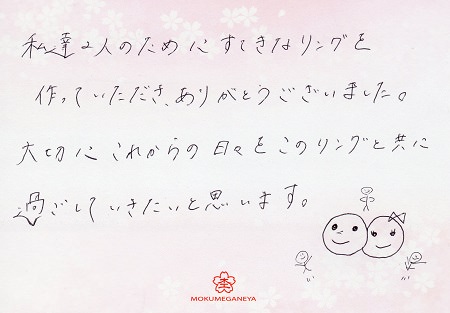 私達2人のためにすてきなリングを
作っていただき、ありがとうございました。
大切にこれからの日々をこのリングと共に
過ごしていきたいと思います。
MOKUMEGANEYA